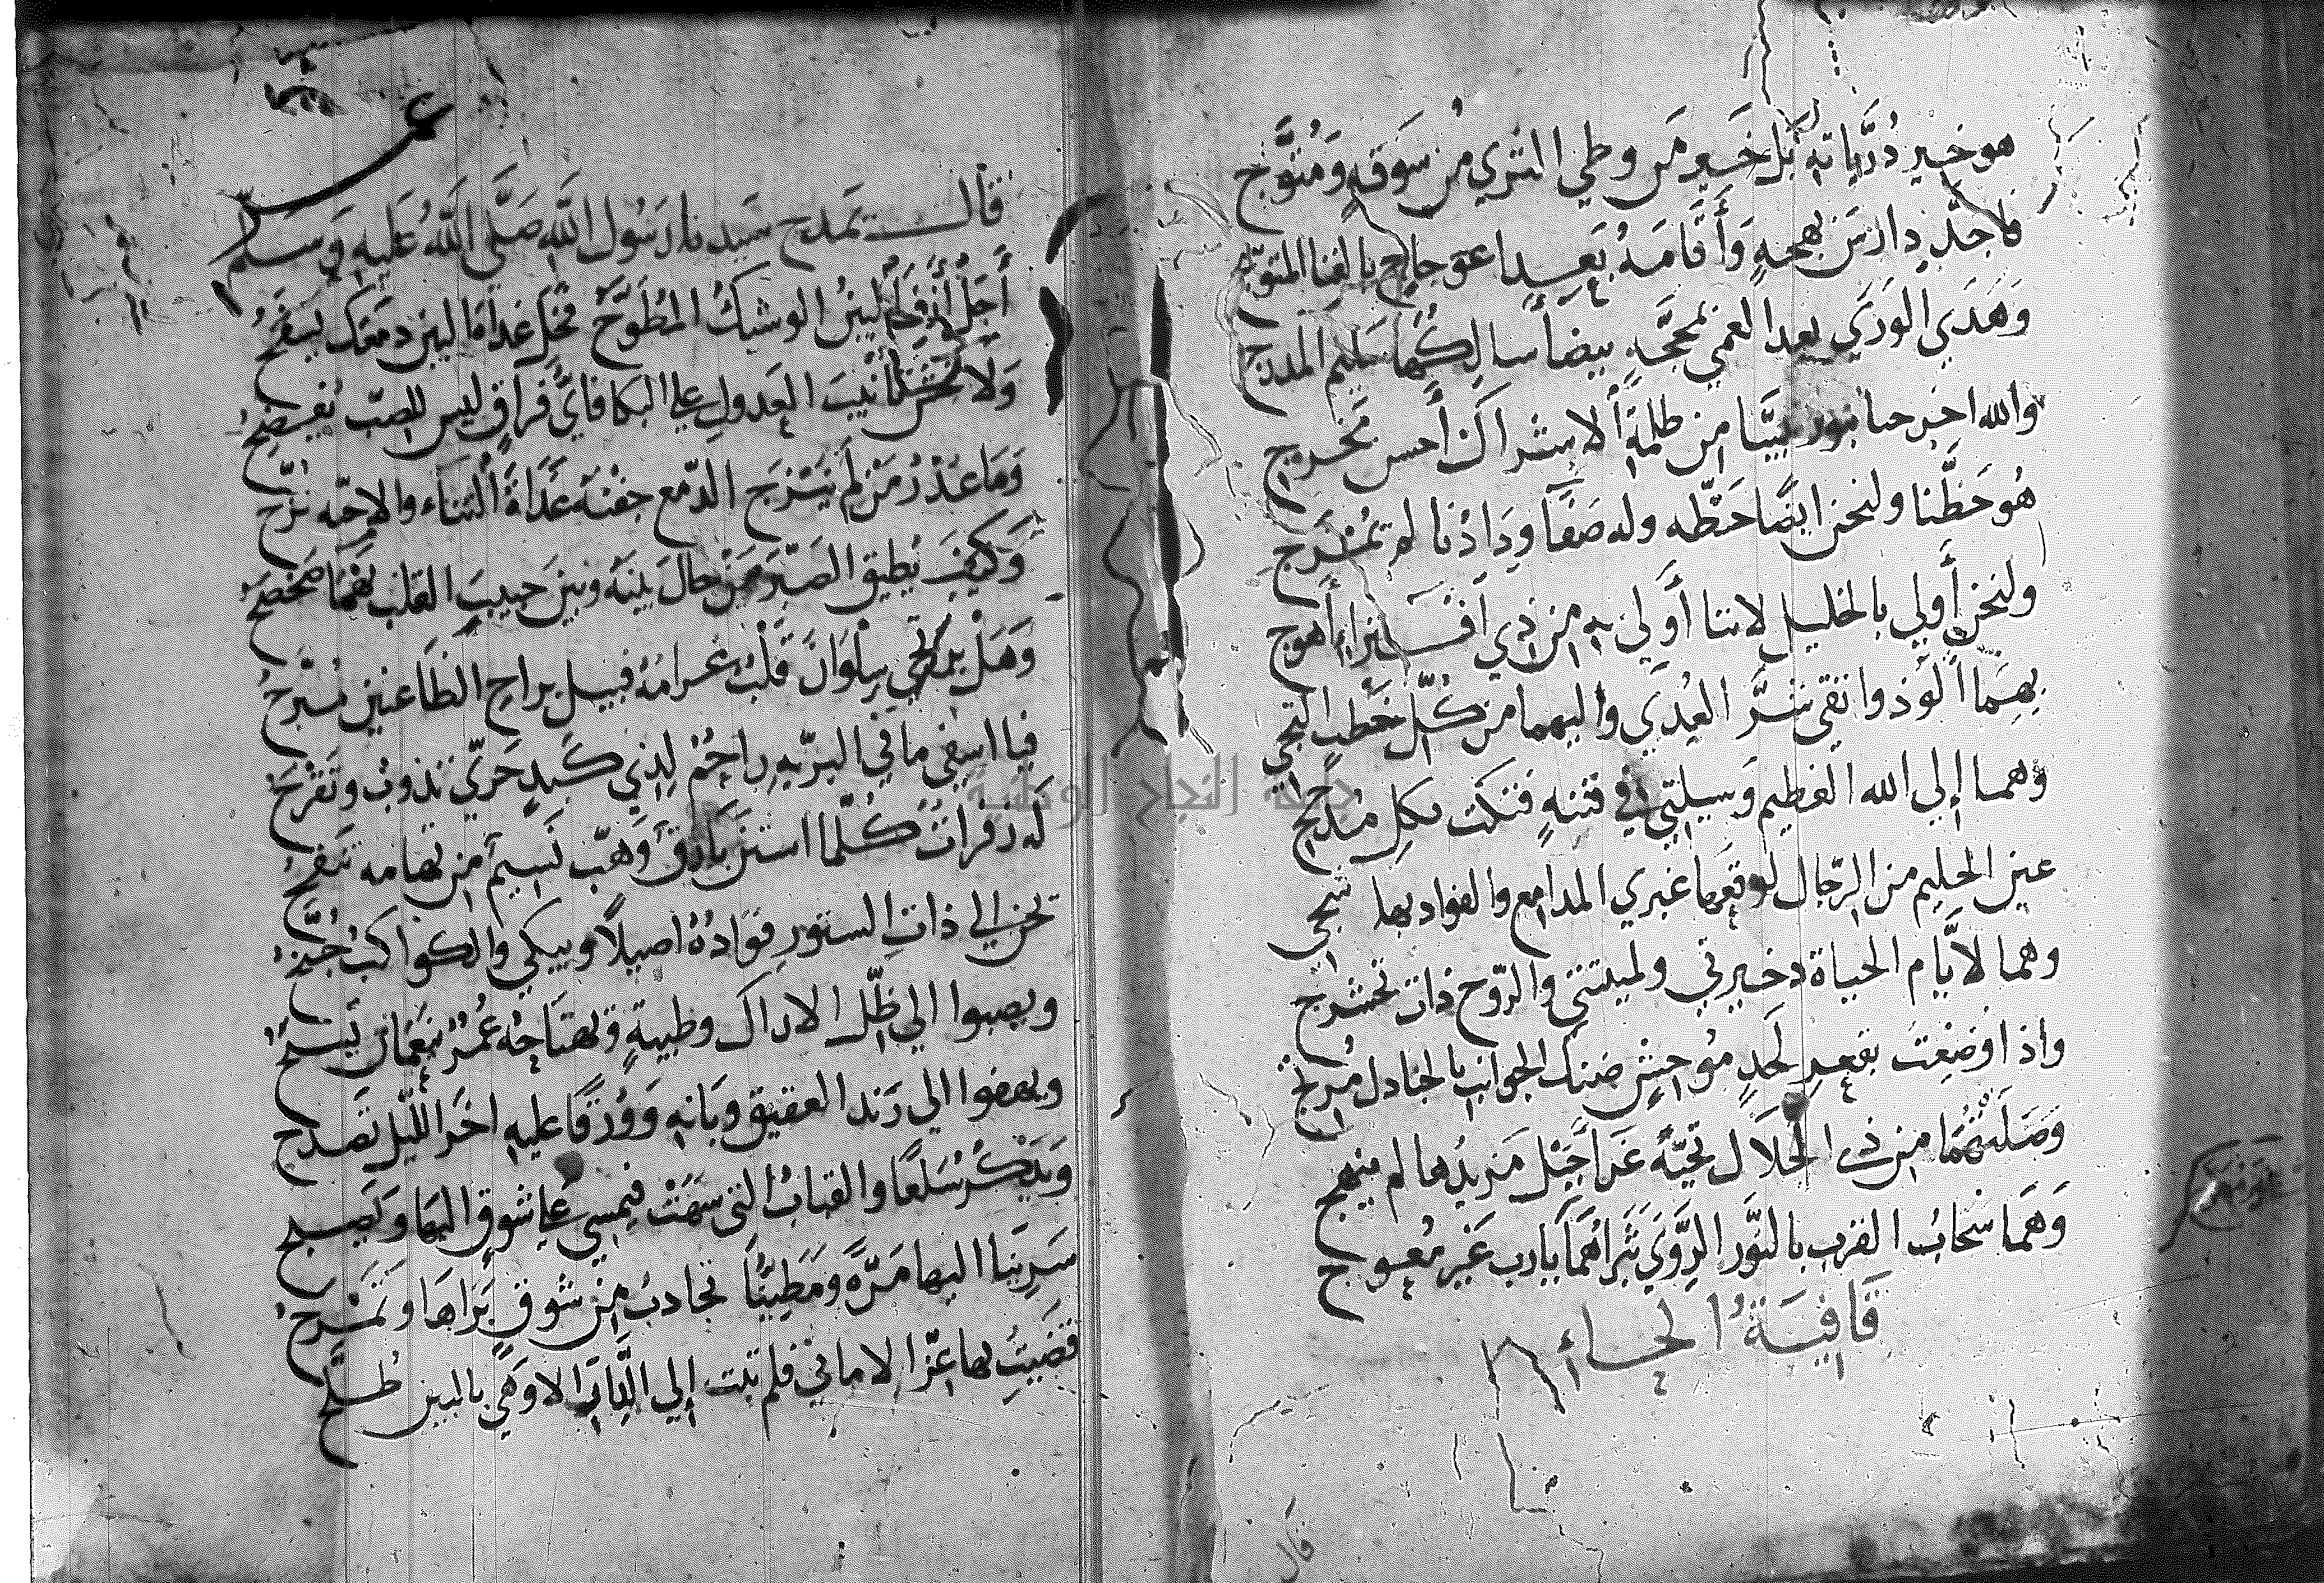 هو خير ذرياته بل خير من وطي الثري من سوقه ومتوج
وأقامه بعد اعوجاج بالقنا المتوج
وهدي الوري بعد العمي بمحجة بيضا سالكها سليم المدرج
والله اخرجنا بنور نبينا من ظلمة الاشراك أحسن مخرج
هو حظنا ولنحن ايضا حظه وله صفا ودادنا لم تمزج
ولنحن أولي بالخليل لاننا أولي به من ذي أهوج
بهما ألوذ واتقي شر العدي واليهما من كل خطب التجي
وهما إلي الله العظيم وسيلتي في فتنة فتكت بكل مدجج
عين الحليم من الرجال لوقعها غبري المدامع والفواد بها شجي
وهما لأيام الحياة ذخيرتي ولميتتي والروح ذات تحشرج
واذا وضعت بقعر لحد موحش ضنك الجوانب بالجنادل مرتج
وصلتهما من ذي الجلال تحية غرا جبل مزيدها لم ينهج
وهما سحاب القرب بالنور الروي ثراهما يارب غير معوج
قافية الحاء
قال يمدح سيدنا رسول الله صلي الله عليه وسلم
أجل للبين الوشيك المطوح فخل غداة البين دمعك يسفح
ولا تخش تأنيب العذول علي البكا فأي فراق ليس للصب يفضح
وما عذر من لم ينزح الدمع جفنه غداة التناء والاحبه نزح
وكيف يطيق الصبر من حال بينه وبين حبيب القلب بهما صحصح
وهل يرتجي سلوان قلب غرامه قبيل براح الظاعنين مبرح
فيا اسفي ما في البريه راحم لذي كبد حري تذوب وتقرح
له زفرات كلما استن بارق وهب نسيم من تهامه تنفح
يحن الي ذات الستور فؤاده اصيلا ويبكي والكواكب جنح
ويصبوا الي ظل الاراك وطيبة وتهتاجه عمر بنعمان يسرح
ويهفوا الي رند العقيق وبانه وورقا عليه اخر الليل تصدح
ويذكر سلعا والقباب التي سمت فيمسي علي شوق اليها ويصبح
سرينا اليها مرة ومطينا تجاذب من شوق براها وتمرح
قضيت بها عز الاماني فلم تبت إلي الا وهي بالبين طلح
قال